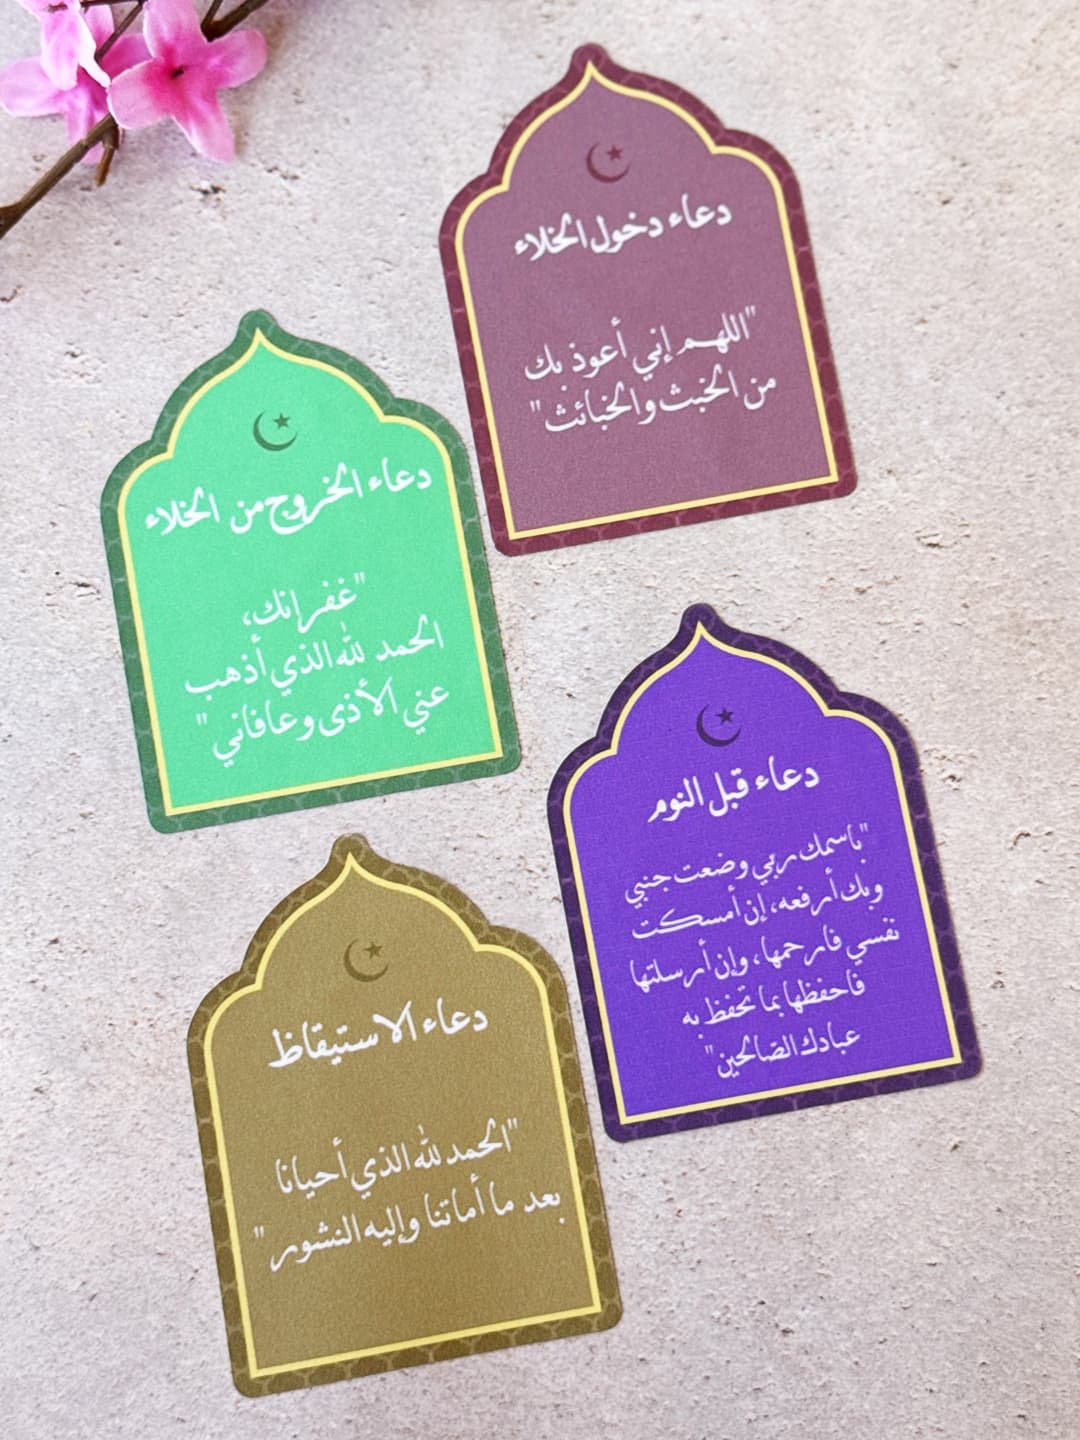 دعاء دخول الخلاء
"اللهم إني أعوذ بك
من الخبث والخبائث"
دعاء الخروج من الخلاء
"غفرانك،
الحمد لله الذي أذهب
عني الأذى وعافاني"
دعاء قبل النوم
"باسمك ربي وضعت جنبي
وبك أرفعه، إن أمسكت
نفسي فارحمها، وإن أرسلتها
فاحفظها بما تحفظ به
عبادك الصّالحين"
دعاء الاستيقاظ
"الحمد لله الذي أحيانا
بعد ما أماتنا وإليه النشور"